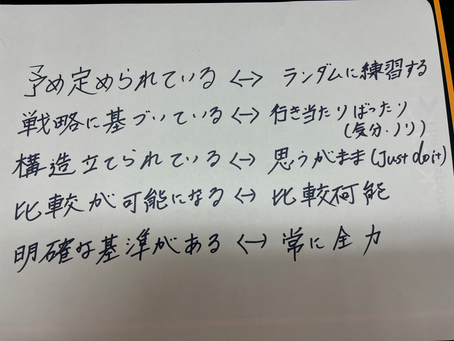 予め定められている <-> ランダムに練習する
戦略に基づいている <-> 行き当たりばったり
(気分・ノリ)
構造立てられている <-> 思うがまま(Just do it)
比較が可能になる <-> 比較不可能
明確な基準がある <-> 常に全力